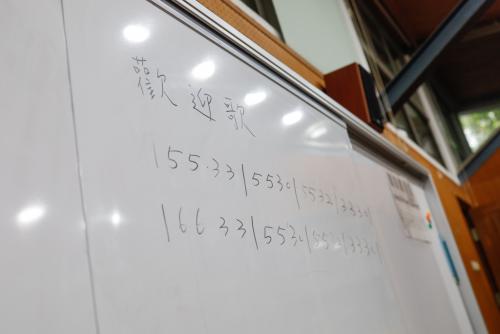 歡迎歌
155.33|5530|5532|3330
16633|5530|5532|3330